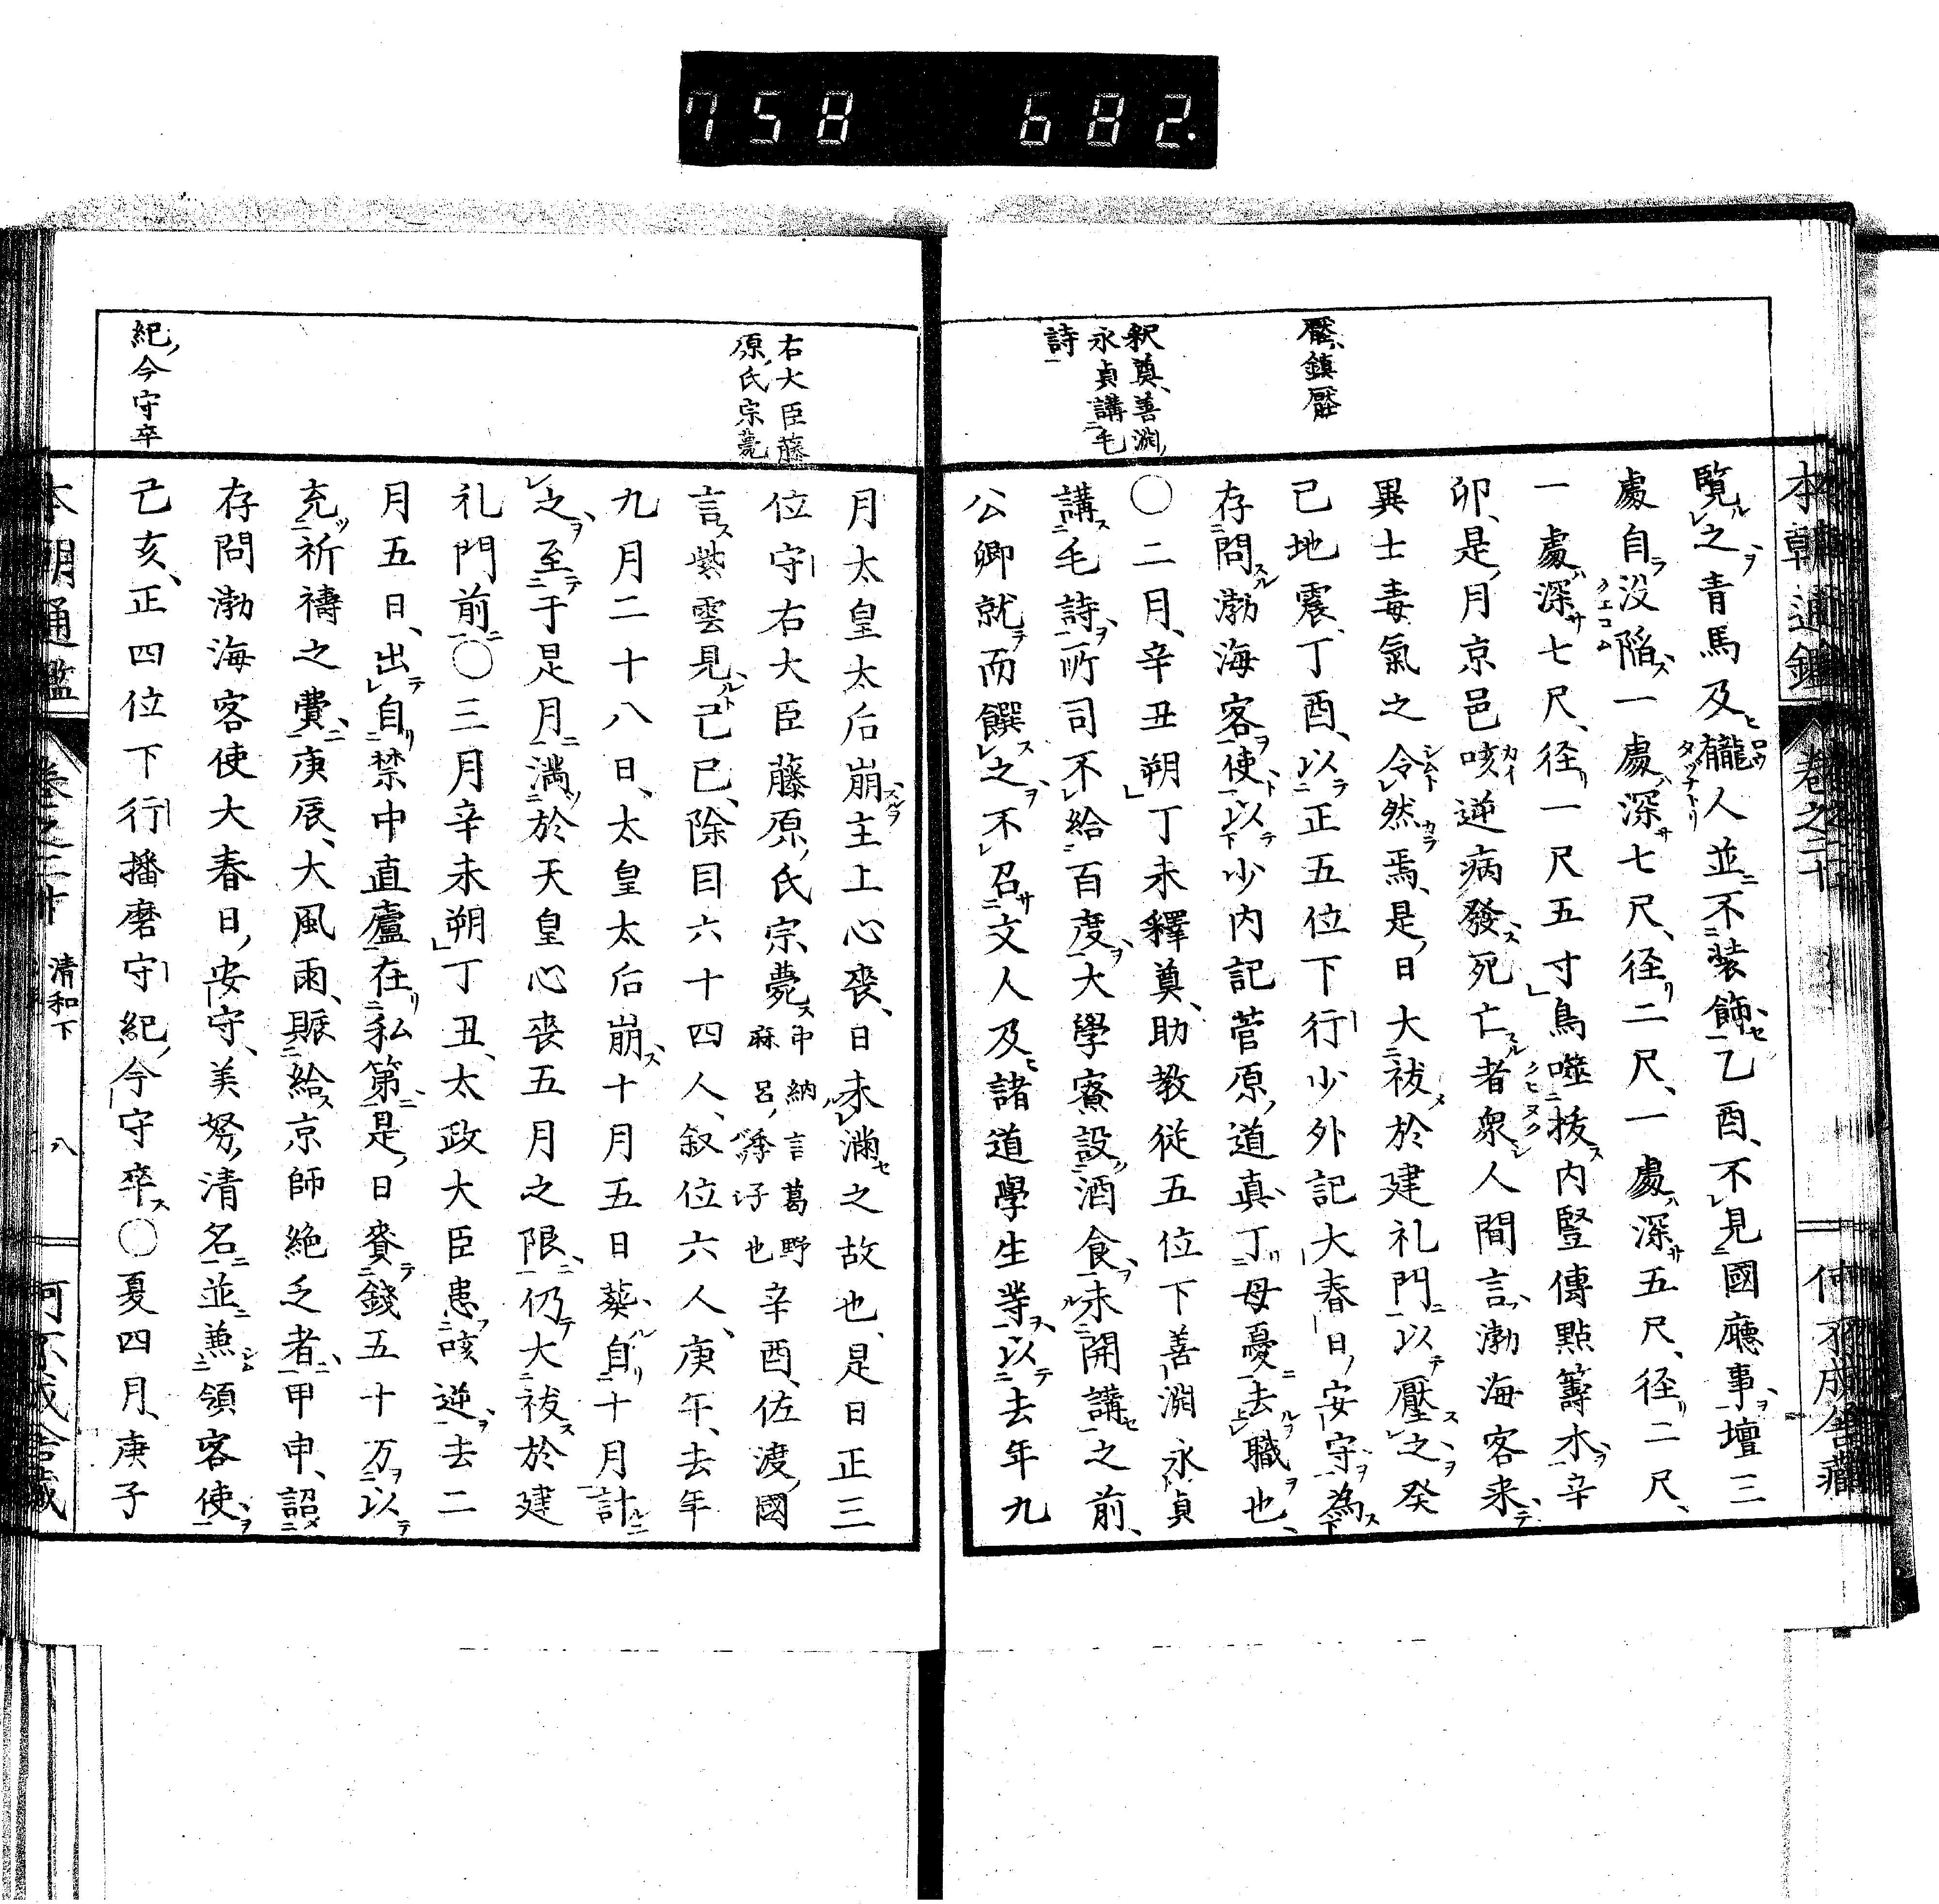 758 682.
本朝通鑑 卷之二十 何不成舎藏
壓、鎮壓
釈奠、善淵
永貞講毛
詩
覽之青馬及䮾人並不装飾乙酉、不見國廳事、壇三
處自没陥一處深七尺、径二尺、一處深五尺、径二尺、
一處深七尺、径一尺五寸鳥噬抜内豎傳點籌木、辛
卯、是月京邑咳逆病發死亡者衆人間言渤海客来、
異士毒氣之令然焉、是日大祓於建礼門以壓之癸
己地震、丁酉、以正五位下行少外記大春日安守為
存問渤海客使以少内記菅原道真丁母憂去職也、
○二月、辛丑朔丁未釋奠、助教従五位下善淵永貞
講毛詩所司不給百度、大學寮設酒食未開講之前、
公卿就而饌之不召文人及諸道學生等以去年九
右大臣藤
原氏宗薨
紀今守卒
月太皇太后崩主上心喪、日未満之故也、是日正三
位守右大臣藤原氏宗薨
中納言葛野
麻呂季子也
辛酉、佐渡國
言紫雲見己巳、除目六十四人、叙位六人、庚午、去年
九月二十八日、太皇太后崩十月五日葬自十月計
之至于是月満於天皇心喪五月之限仍大祓於建
礼門前○三月辛未朔丁丑、太政大臣患咳逆去二
月五日、出自禁中直廬在私第是日賚錢五十万以
充祈禱之費、庚辰、大風雨、賑給京師絶乏者甲申、詔
存問渤海客使大春日安守、美努清名並兼領客使
己亥、正四位下行播磨守紀今守卒○夏四月、庚子
本朝通鑑 卷之二十 清和下 八 何不成舎藏